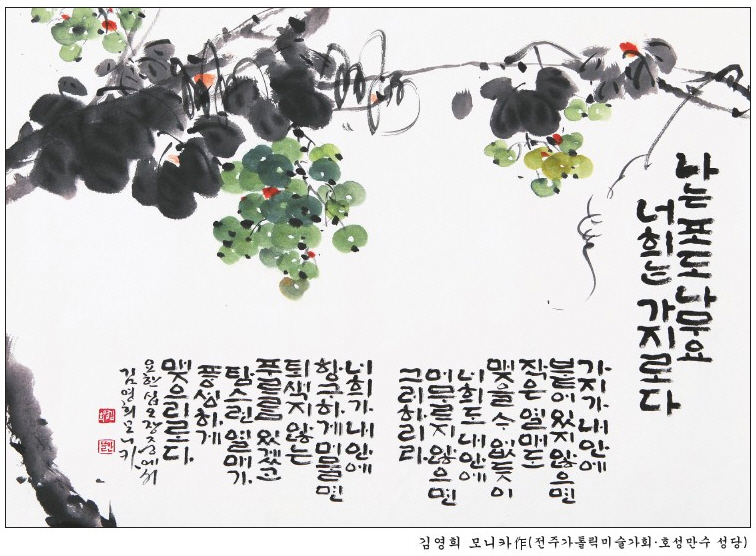 나는 포도나무요
너희는 가지로다
가지가 내 안에
붙어 있지 않으면
작은 열매도
맺을 수 없듯이
너희도 내 안에
머무르지 않으면
그러하리라
너희가 내 안에
항구하게 머물면
퇴색지 않는
푸르름 있겠고
탐스런 열매가
풍성하게
맺으리로다.
요한 십오장중에서
김영희모니카
김영희 모니카作(전주가톨릭미술가회·호성만수 성당)